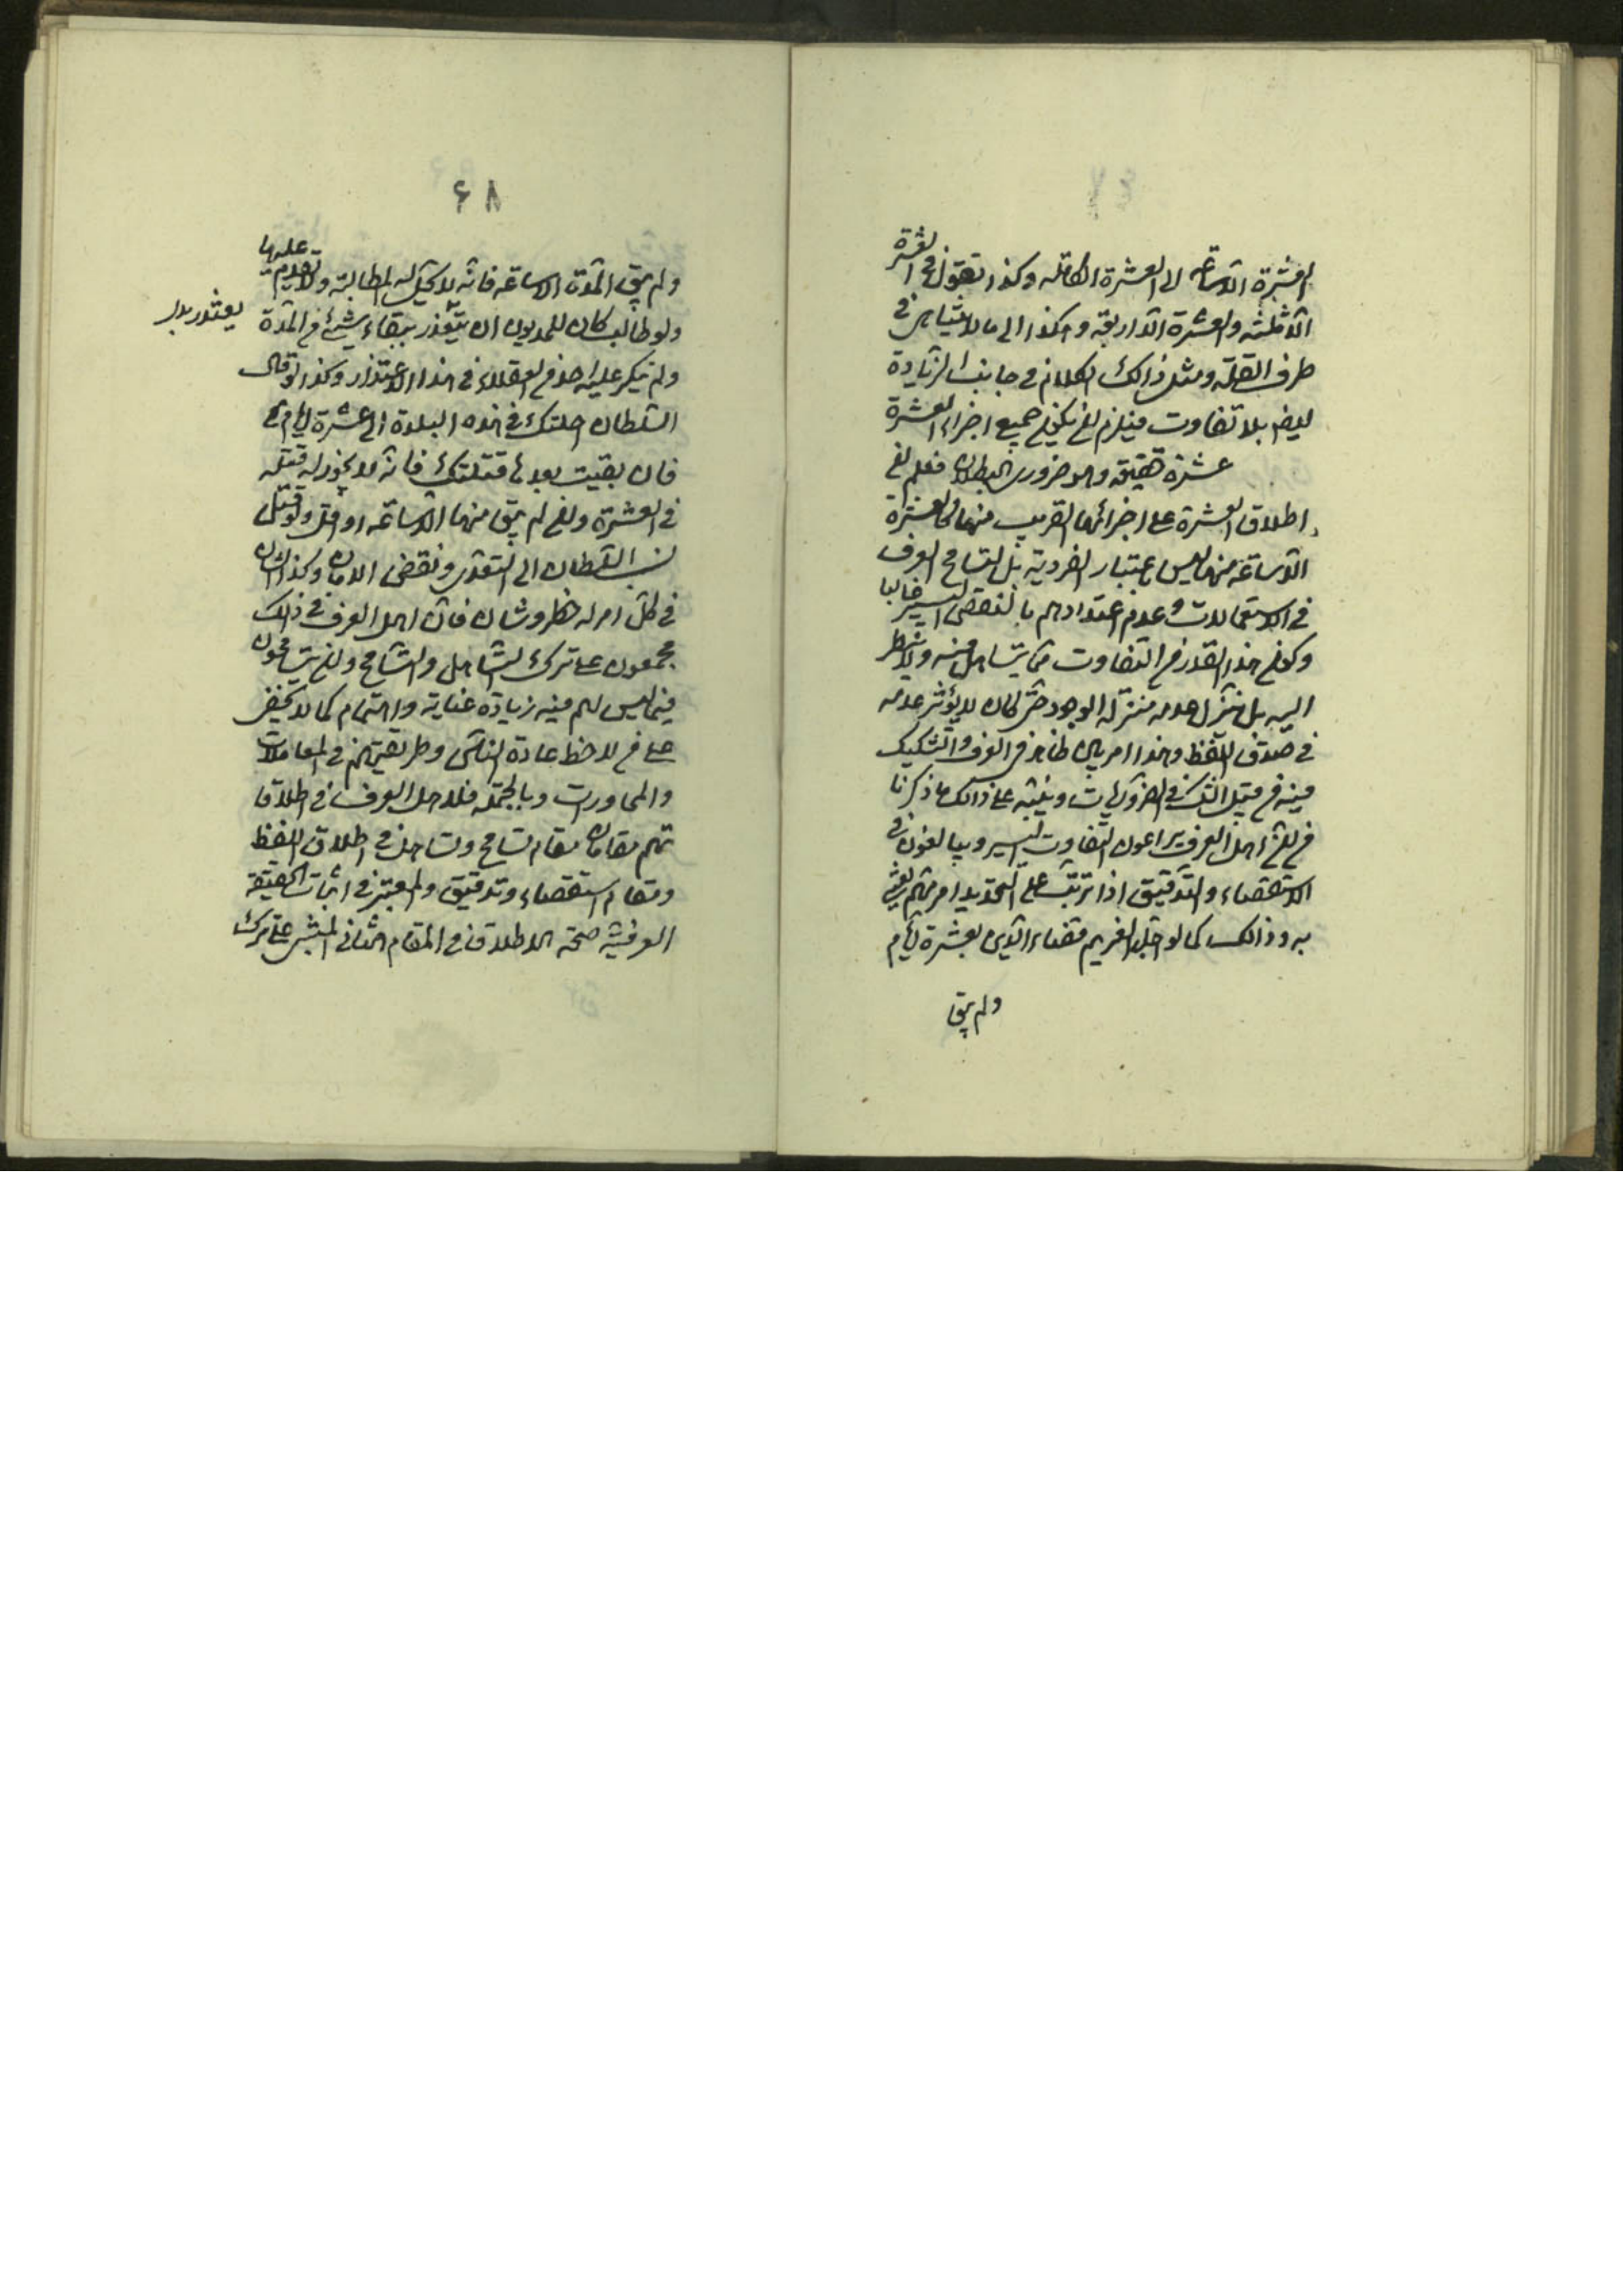 العشرة الا ساعة الى العشرة الكاملة وكذا نقول فى العشرة
الا ثلثه والعشرة الا اربعة وهكذا الى ما لا يتناهى فى
طرف القلة ومثل ذالك الكلام فى جانب الزيادة
ايضا بلا تفاوت فيلزم ان يكون جميع اجزاء العشرة
عشرة حقيقة وهو ضرورى البطلان فعلم ان
اطلاق العشرة على اجزائها القريب منها كالعشرة
الا ساعة منها ليس باعتبار الفردية بل لتسامح العرف
فى الاستعمالات وعدم اعتدادهم بالنقص اليسير غالبا
وكون هذا القدر من التفاوت مما يتساهل فيه ولا ينظر
اليه بل ينزل عدمه منزلة الوجود حتى كان لا يؤثر عدمه
فى صدق اللفظ وهذا امر بين ظاهر فى العرف والتشكيك
فيه من قبيل الشك فى الضروريات وينبه على ذالك ما ذكرنا
من ان اهل العرف يراعون التفاوت اليسير ويبالغون فى
الاستقصاء والتدقيق اذا ترتب على التحديد امر مهم يعتنى
به وذالك كما لو اجل الغريم قضاء الدين بعشرة ايام
ولم يبق
۶۸
ولم يبق المدة الا ساعة فانه لا يحل له المطالبة ولا تقديم عليها
ولو طالب كان للمديون ان يتعذر ببقاء شئ من المدة
يعتذر بدل
ولم ينكر عليه احد من العقلاء فى هذا الاعتذار وكذا لو قال
السلطان اجلتك فى هذه البلدة الى عشرة ايام
فان بقيت بعدها قتلتك فانه لا يجوز له قتله
فى العشرة وان لم يبق منها الا ساعة او اقل ولو قتل
نسب السلطان الى التعذر ونقض الامان وكذا الشان
فى كل امر له خطر وشان فان اهل العرف فى ذلك
مجمعون على ترك التساهل والتسامح وان يتسامحون
فيما ليس لهم فيه زيادة عناية واهتمام كما لا يخفى
على من لاحظ عادة الناس وطريقتهم فى المعاملات
والمحاورات وبالجملة فلاهل العرف فى اطلاقا
تهم مقامان مقام تسامح وتساهل فى اطلاق اللفظ
ومقام استقصاء وتدقيق والمعتبر فى اثبات الحقيقة
العرفية صحة الاطلاق فى المقام الثانى المبتنى على ترك